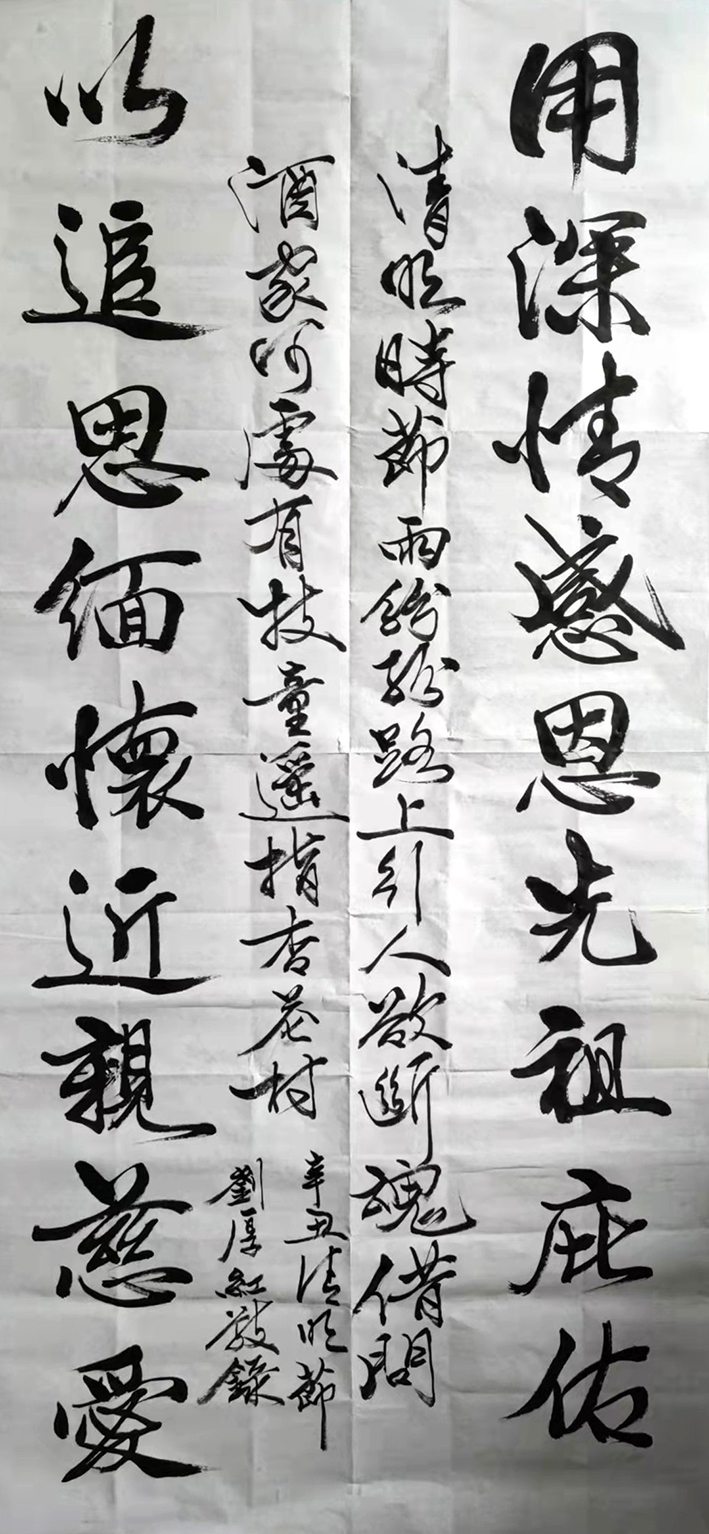 用深情感恩先祖庇佑
清明時節雨紛紛路上行人欲斷魂借問
酒家何處有牧童遙指杏花村
辛丑清明節
劉厚紅敬錄
以追思緬懷近親慈愛